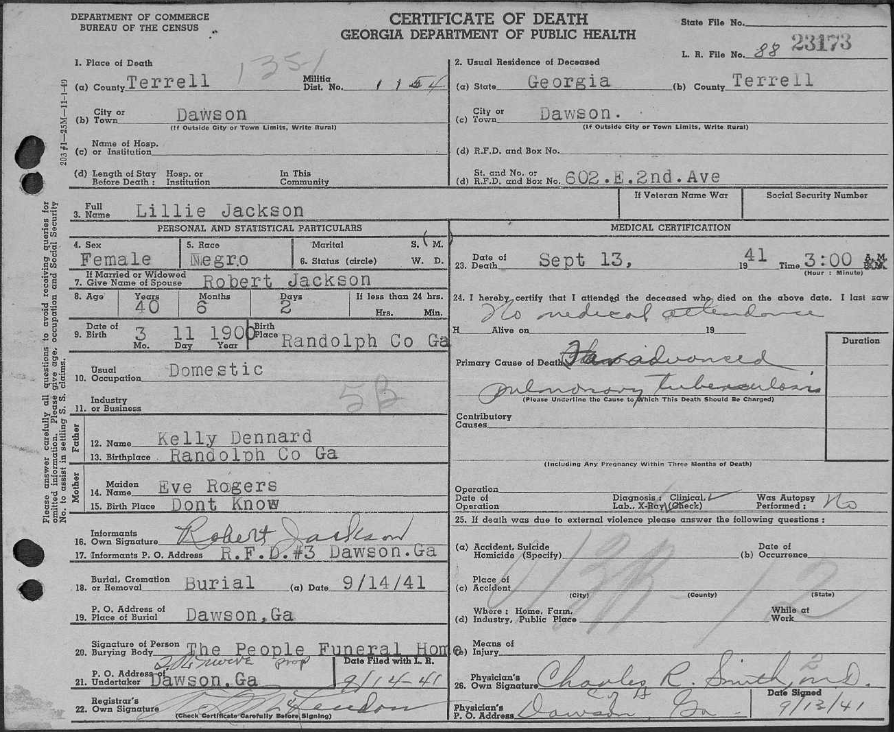 DEPARTMENT OF COMMERCE
BUREAU OF THE CENSUS
CERTIFICATE OF DEATH
GEORGIA DEPARTMENT OF PUBLIC HEALTH
State File No.
L. R. File No. 88 23173
203 #1—25M—11-1-40
Please answer carefully all questions to avoid receiving queries for
omitted information. Please give age, occupation and Social Security
No. to assist in settling S. S. claims.
1. Place of Death 1351
(a) County Terrell Militia Dist. No. 1154
(b) City or Town Dawson
(If Outside City or Town Limits, Write Rural)
(c) Name of Hosp. or Institution
(d) Length of Stay Before Death: Hosp. or Institution In This Community
2. Usual Residence of Deceased
(a) State Georgia (b) County Terrell
(c) City or Town Dawson.
(If Outside City or Town Limits, Write Rural)
(d) R.F.D. and Box No.
(d) St. and No. or R.F.D. and Box No. 602.E.2nd.Ave
3. Full Name Lillie Jackson
If Veteran Name War
Social Security Number
PERSONAL AND STATISTICAL PARTICULARS
4. Sex Female
5. Race Negro
6. Marital Status (circle) S. M. W. D.
7. If Married or Widowed Give Name of Spouse Robert Jackson
8. Age Years 40 Months 6 Days 2 If less than 24 hrs. Hrs. Min.
9. Date of Birth 3 11 1900 Birth Place Randolph Co Ga
Mo. Day Year
10. Usual Occupation Domestic
11. Industry or Business 5B
Father
12. Name Kelly Dennard
13. Birthplace Randolph Co Ga
Mother
14. Maiden Name Eve Rogers
15. Birth Place Dont Know
16. Informants Own Signature Robert Jackson
17. Informants P. O. Address R.F.D.#3 Dawson.Ga
18. Burial, Cremation or Removal Burial (a) Date 9/14/41
19. P. O. Address of Place of Burial Dawson,Ga
20. Signature of Person Burying Body The People Funeral Home
prop
21. P. O. Address of Undertaker Dawson.Ga Date Filed with L. R. 9/14-41
22. Registrar's Own Signature
(Check Certificate Carefully Before Signing)
MEDICAL CERTIFICATION
23. Date of Death Sept 13, 1941 Time 3:00 A.M.
(Hour : Minute)
24. I hereby certify that I attended the deceased who died on the above date. I last saw
No medical attendance
H Alive on 19
Duration
Primary Cause of Death Far advanced
pulmonary tuberculosis
(Please Underline the Cause to Which This Death Should Be Charged)
Contributory Causes
(Including Any Pregnancy Within Three Months of Death)
Operation
Date of Operation Diagnosis: Clinical, ✓ Lab., X-Ray (Check) Was Autopsy Performed: No
25. If death was due to external violence please answer the following questions:
(a) Accident, Suicide Homicide (Specify) (b) Date of Occurrence
(c) Place of Accident
(City) (County) (State)
13B-12
(d) Where: Home, Farm, Industry, Public Place While at Work
(e) Means of Injury
26. Physician's Own Signature Charles R. Smith, M.D.
Physician's P. O. Address Dawson, Ga Date Signed 9/13/41